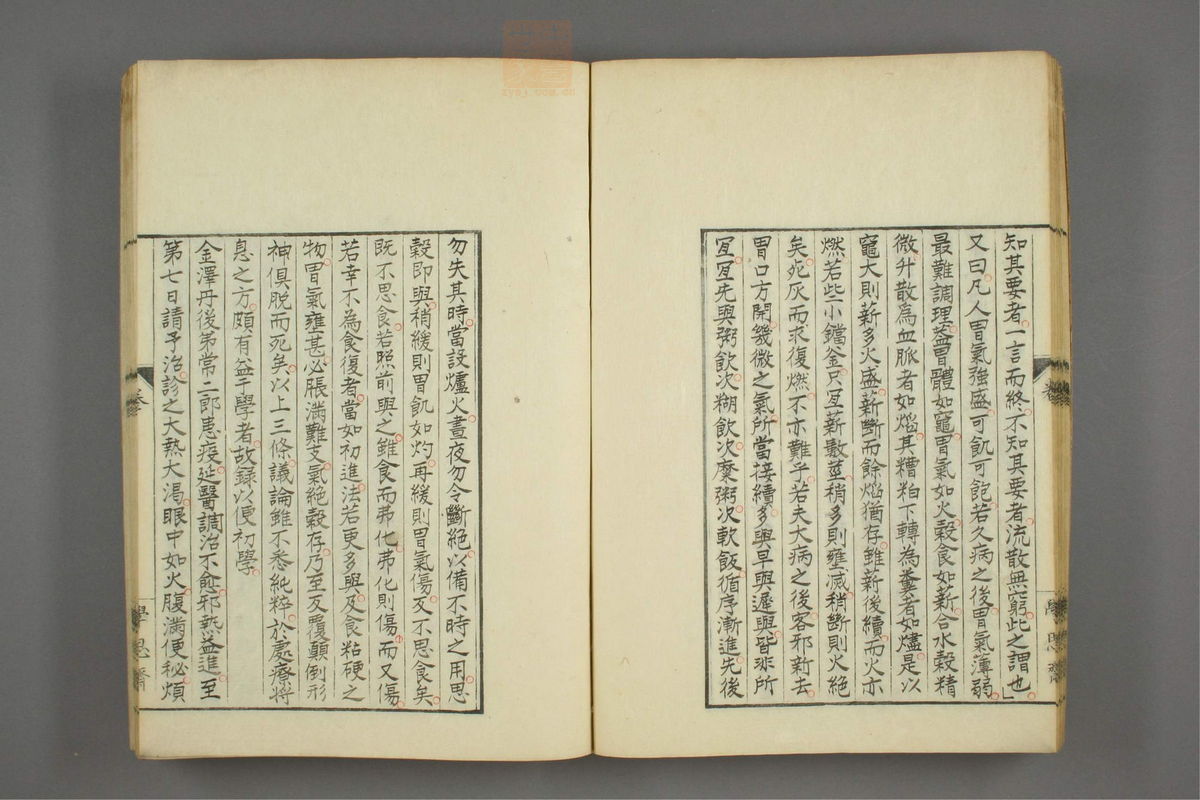 知其要者一言而終不知其要者流散無窮此之謂也
又曰凡人胃氣強盛可飢可飽若久病之後胃氣薄弱
最難調理蓋胃體如竈胃氣如火穀食如薪合水穀精
微升散為血脈者如焰其糟粕下轉為糞者如燼是以
竈大則薪多火盛薪斷而餘焰猶存雖薪後續而火亦
燃若些小鐺釜只宜薪數莖稍多則壅滅稍斷則火絕
矣死灰而求復燃不亦難乎若夫大病之後客邪新去
胃口方開幾微之氣所當接續多與早與遲與皆非所
宜宜先與粥飲次糊飲次糜粥次軟飯循序漸進先後
勿失其時當設爐火晝夜勿令斷絕以備不時之用思
穀即與稍緩則胃飢如灼再緩則胃氣傷反不思食矣
既不思食若照前與之雖食而弗化弗化則傷而又傷
若幸不為食復者當如初進法若更多與及食粘硬之
物胃氣壅甚必脹滿難支氣絕穀存乃至反覆顛倒形
神俱脫而死矣以上三條議論雖不悉純粹於處療將
息之方頗有益于學者故錄以便初學
金澤丹後弟常二郎患疫延醫調治不愈邪熱益進至
第七日請予治診之大熱大渴眼中如火腹滿便秘煩
學思齋